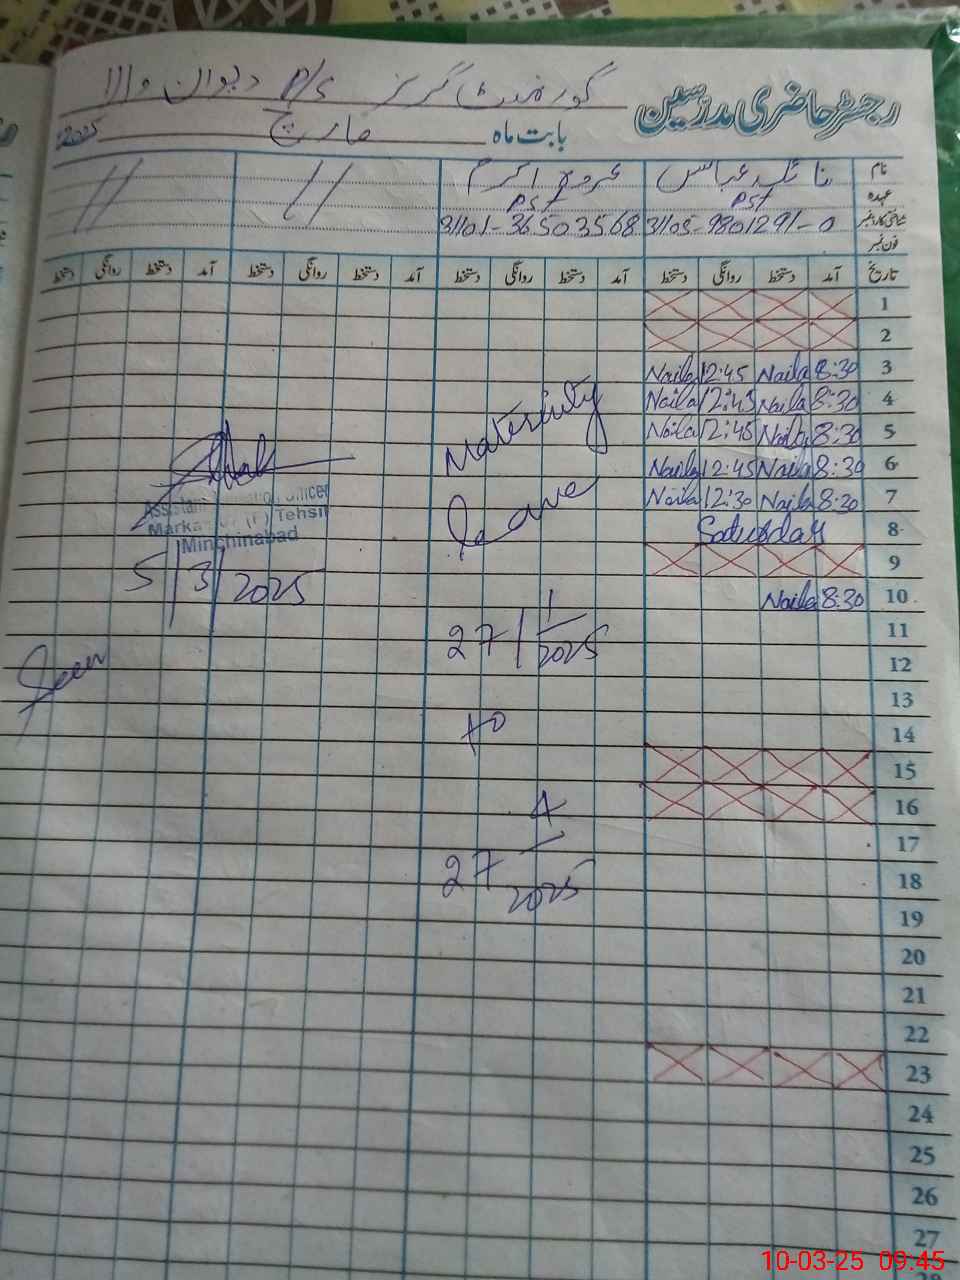 رجسٹر حاضری مدرسین
گورنمنٹ گرلز P/S دیوان والا
بابت ماہ مارچ 2025
نام نائلہ عباس عروج اکرم // //
عہدہ PST PST
شناختی کارڈ نمبر 31105-9801291-0 31101-3650356 8
فون نمبر
تاریخ آمد دستخط روانگی دستخط آمد دستخط روانگی دستخط آمد دستخط روانگی دستخط آمد دستخط روانگی دستخط
1
2
3 8:30 Naila 12:45 Naila
4 8:30 Naila 12:45 Naila
5 8:30 Naila 12:45 Naila
6 8:30 Naila 12:45 Naila
7 8:30 Naila 12:30 Naila
8 Saturday
9
10 8:30 Naila
11
12
13
14
15
16
17
18
19
20
21
22
23
24
25
26
27
Maternity
leave
27/1/2025
to
27 4/2025
Assistant Education Officer
Markaz (F) Tehsil
Minchinabad
5/3/2025
Seen
10-03-25 09:45